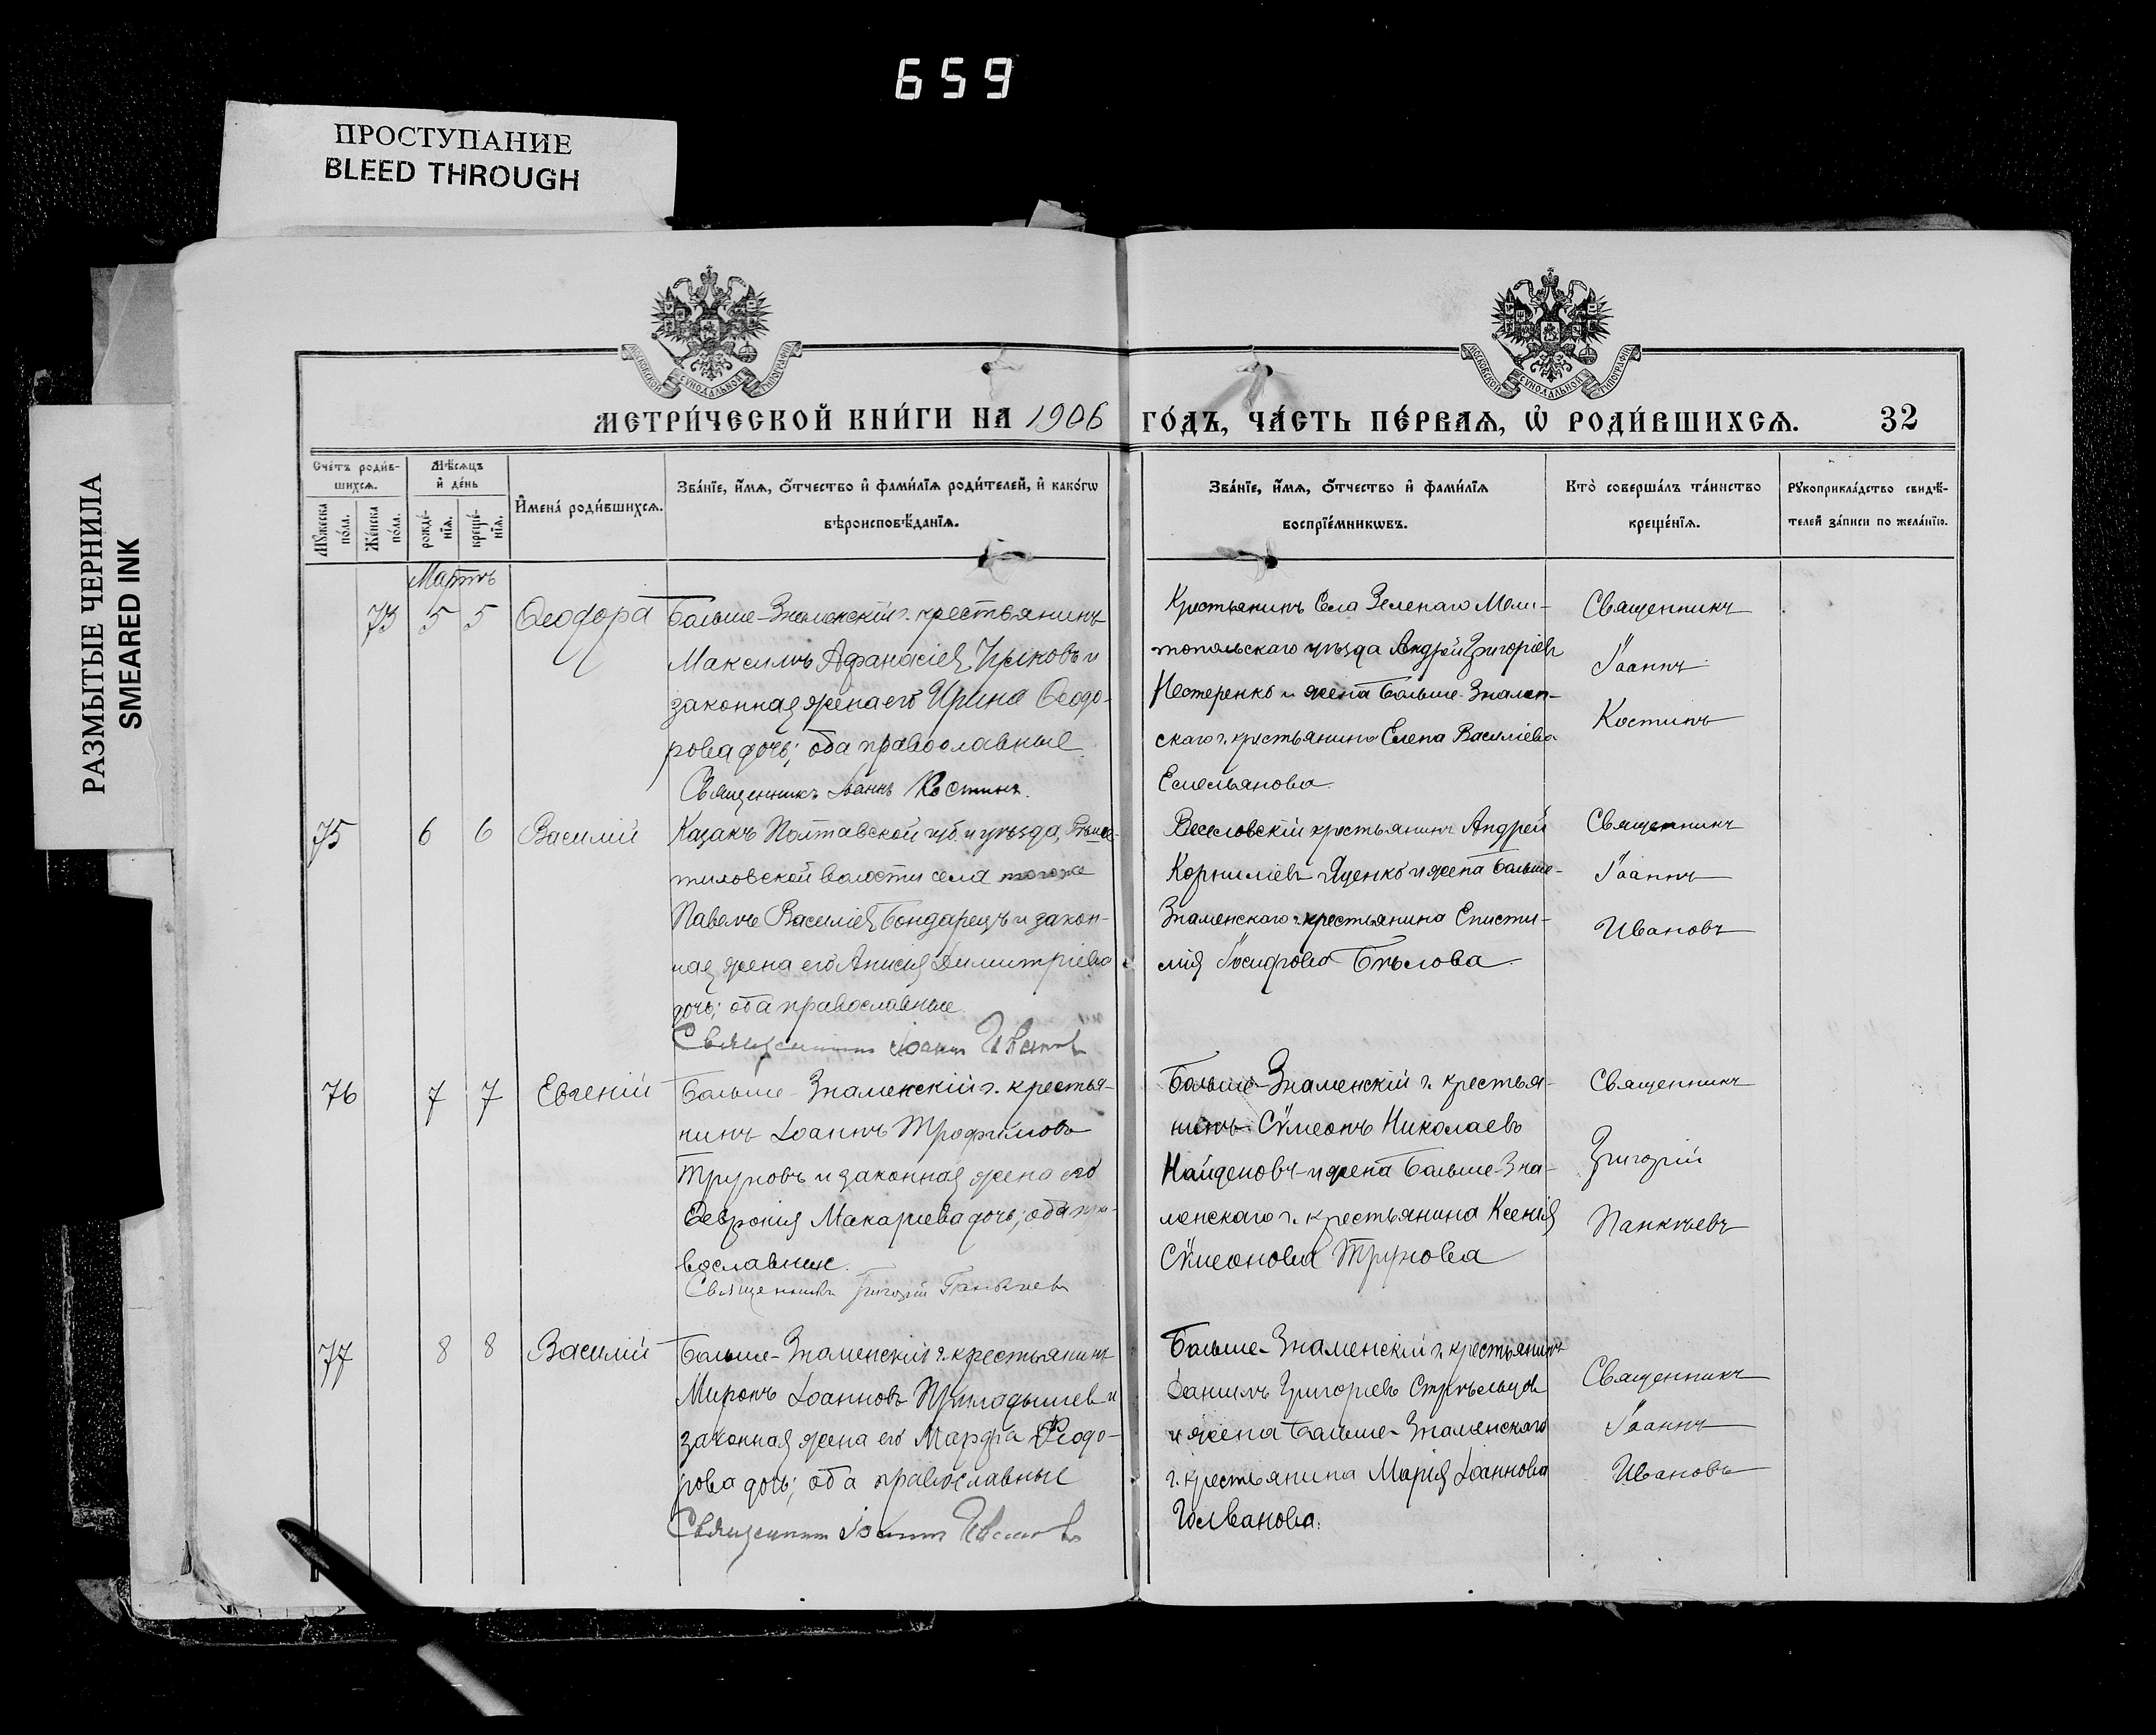 659
ПРОСТУПАНИЕ
BLEED THROUGH
РАЗМЫТЫЕ ЧЕРНИЛА
SMEARED INK
МОСКОВСКОЙ СѴНОДАЛЬНОЙ ТИПОГРАФІИ
МОСКОВСКОЙ СѴНОДАЛЬНОЙ ТИПОГРАФІИ
МЕТРИ́ЧЕСКОЙ КНИ́ГИ НА 1906 ГО́ДЪ, ЧА́СТЬ ПЕ́РВАѦ, Ѡ҆ РОДИ́ВШИХСѦ. 32
Сче́тъ роди́в-
шихсѧ.
Мꙋ́жеска по́ла.
Же́нска по́ла.
Мѣ́сѧцъ
и҆ де́нь
рожде́-
нїѧ.
креще́-
нїѧ.
И҆мена́ роди́вшихсѧ.
Зва́нїе, и҆́мѧ, ѻ҆́тчество и҆ фами́лїѧ роди́телей, и҆ како́гѡ
вѣроисповѣ́данїѧ.
Зва́нїе, и҆́мѧ, ѻ҆́тчество и҆ фами́лїѧ
воспрїе́мникѡвъ.
Кто̀ соверша́лъ та́инство
креще́нїѧ.
Рꙋкоприкла́дство свидѣ́-
телей за́писи по жела́нїю.
Мартъ
73 5 5 Ѳеодора
Больше-Знаменскій г. крестьянинъ
Максимъ Афанасіев и
законная жена его Ирина Ѳеодо-
рова дочь; оба православные
Священникъ Іоаннъ Костинъ.
Крестьянинъ Села Зеленаго Мели-
топольскаго уѣзда Андрей Григоріевъ
Нестеренко и жена Больше-Знамен-
скаго г. крестьянина Елена Василіева
Емельянова.
Священникъ
Іоаннъ
Костинъ
75 6 6 Василій
Казакъ Полтавской губ. и уѣзда,
волости села того же
Павелъ Василіев Бондарецъ и закон-
ная жена его Анисія Димитріева
дочь; оба православные.
Священникъ Іоаннъ Ивановъ
Веселовскій крестьянинъ Андрей
Корниліевъ Яценко и жена Больше-
Знаменскаго г. крестьянина Еписти-
мія Іосифова Бѣлова
Священникъ
Іоаннъ
Ивановъ
76 7 7 Евгеній
Больше-Знаменскій г. крестья-
нинъ Іоаннъ Трофимовъ
Труновъ и законная жена его
Ѳеврония Макариева дочь; оба пра-
вославные.
Священникъ Григорій Панкѣевъ
Больше-Знаменскій г. крестья-
нинъ Сѵмеонъ Николаевъ
Найденовъ и жена Больше-Зна-
менскаго г. крестьянина Ксенія
Сѵмеонова Трунова
Священникъ
Григорій
Панкѣевъ
77 8 8 Василій
Больше-Знаменскій г. крестьянинъ
Миронъ Іоанновъ и
законная жена его Марфа Ѳеодо-
рова дочь; оба православные
Священникъ Іоаннъ Ивановъ
Больше-Знаменскій г. крестьянинъ
Даниилъ Григоріевъ Стрѣльцов
и жена Больше-Знаменскаго
г. крестьянина Марія Іоаннова
Священникъ
Іоаннъ
Ивановъ